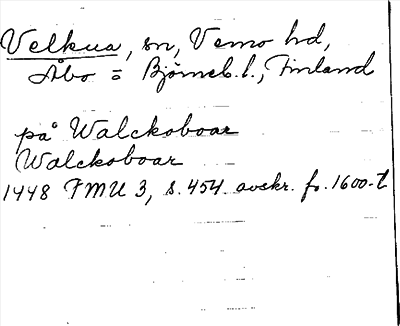 Velkua, sn, Vemo hd,
Åbo = Björneb. l., Finland
på Walckoboar
Walckoboar
1448 FMU 3, s. 454. avskr. fr. 1600-t